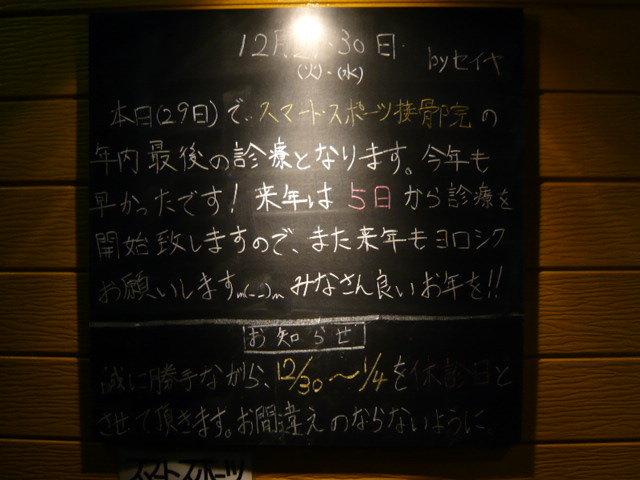 12月 ・30日 byセイヤ
(火)・(水)
本日(29日)で、スマート・スポーツ接骨院の
年内最後の診療となります。今年も
早かったです! 来年は 5日 から診療を
開始致しますので、また来年もヨロシク
お願いしますm(--)m みなさん良いお年を!!
お知らせ
誠に勝手ながら、12/30〜1/4を休診日と
させて頂きます。お間違えのならないように。
スマートスポーツ